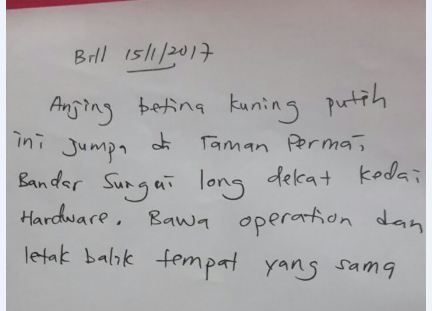 Bill 15/1/2017
Anjing betina kuning putih
ini jumpa di Taman Permai,
Bandar Sungai long dekat kedai
Hardware. Bawa operation dan
letak balik tempat yang sama